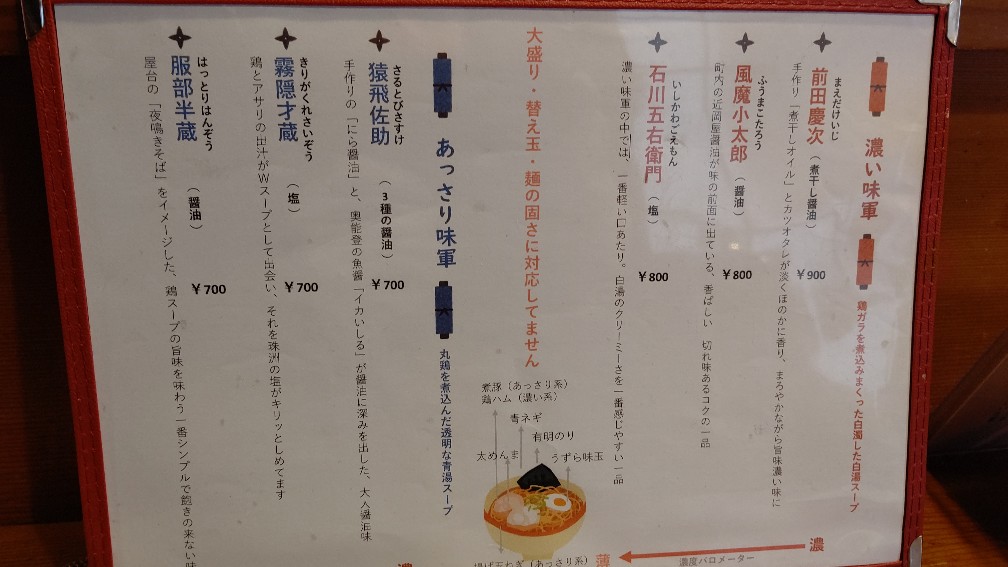 濃い味軍
鶏ガラを煮込みまくった白濁した白湯スープ
まえだけいじ
前田慶次（煮干し醤油）
¥900
手作り「煮干しオイル」とカツオタレが淡くほのかに香り、まろやかながら旨味濃い味に
ふうまこたろう
風魔小太郎（醤油）
¥800
町内の近岡屋醤油が味の前面に出ている、香ばしい 切れ味あるコクの一品
いしかわごえもん
石川五右衛門（塩）
¥800
濃い味軍の中では、一番軽い口あたり。白湯のクリーミーさを一番感じやすい一品
大盛り・替え玉・麺の固さに対応してません
あっさり味軍
丸鶏を煮込んだ透明な青湯スープ
さるとびさすけ
猿飛佐助（3種の醤油）
¥700
手作りの「にら醤油」と、奥能登の魚醤「イカいしる」が醤油に深みを出した、大人醤油味
きりがくれさいぞう
霧隠才蔵（塩）
¥700
鶏とアサリの出汁がWスープとして出会い、それを珠洲の塩がキリッとしめてます
はっとりはんぞう
服部半蔵（醤油）
¥700
屋台の「夜鳴きそば」をイメージした、鶏スープの旨味を味わう一番シンプルで飽きの来ない味
煮豚（あっさり系）
鶏ハム（濃い系）
青ネギ
有明のり
太めんま
うずら味玉
揚げ玉ねぎ（あっさり系）
濃
薄
濃度バロメーター
濃